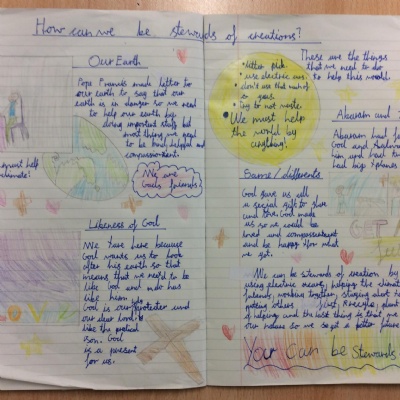 How can we be stewards of creations?
Our Earth
Pope Francis made letter to
our earth to say that our
earth is in danger so we need
to help our earth by
doing important stuffs but
most thing we need
to be kind, helpful and
We are
Gods friends!
must help
climate!
Likeness of God
We are here because
God wants us to look
after his earth so that
means that we need to be
like God and who has
like
God is our protecter and
our dear lord
like the
son. God
is a present
for us.
• litter pick.
• use electric cars.
• don't use that much of
gas.
• Try to not waste.
• We must help
the world by
anything!
These are the things
that we need to do
to help this world.
Abraham and
Abraham had
God and
him and had
had big
Same / differents
God gave us all
a special gift to share
and love. God made
us so we could be
kind and
and be happy for what
we got.
We can be stewards of creation by
using electric means, helping the climate
working together, staying alert
others
of helping and the last thing is that we
our nature so we get a better future
You Can be Stewards